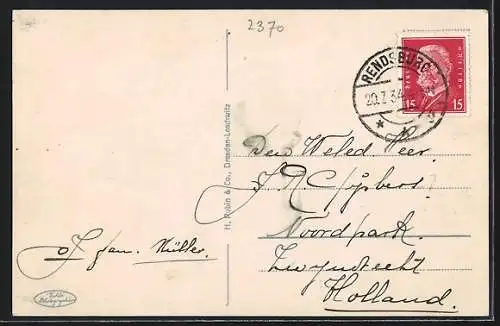 2370
RENDSBURG
20.7.34
DEUTSCHES REICH
15 15
H. Rubin & Co., Dresden-Loschwitz
Den Weled. Heer
Noordpark.
Zwyndrecht
Holland.
Müller.